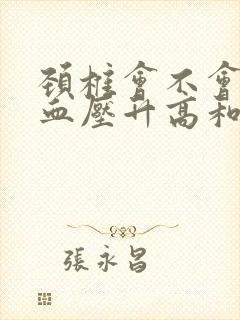 頚椎會不會
血壓升高和
張永昌